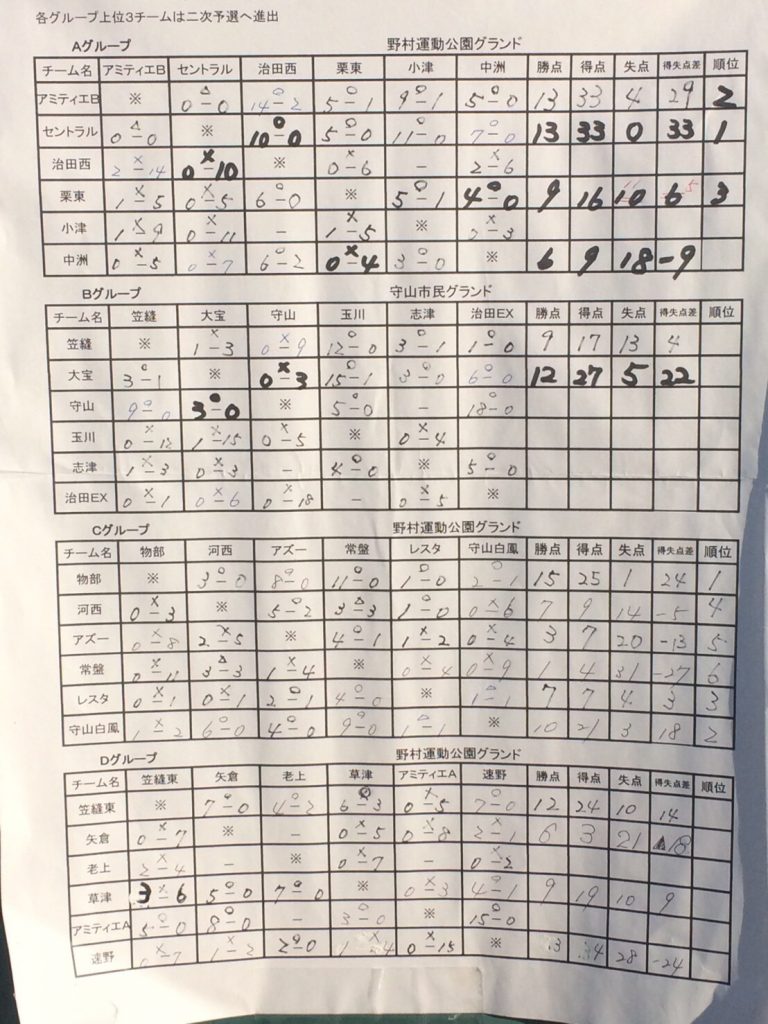 各グループ上位3チームは二次予選へ進出
Aグループ 野村運動公園グランド
チーム名 アミティエB セントラル 治田西 栗東 小津 中洲 勝点 得点 失点 得失点差 順位
アミティエB ※ △ 0-0 ○ 14-2 ○ 5-1 ○ 9-1 ○ 5-0 13 33 4 29 2
セントラル △ 0-0 ※ ○ 10-0 ○ 5-0 ○ 11-0 ○ 7-0 13 33 0 33 1
治田西 × 2-14 × 0-10 ※ × 0-6 - × 2-6
栗東 × 1-5 × 0-5 ○ 6-0 ※ ○ 5-1 ○ 4-0 9 16 10 6 5 3
小津 × 1-9 × 0-11 - × 1-5 ※ × 2-3
中洲 × 0-5 × 0-7 ○ 6-2 × 0-4 ○ 3-0 ※ 6 9 18 -9
Bグループ 守山市民グランド
チーム名 笠縫 大宝 守山 玉川 志津 治田EX 勝点 得点 失点 得失点差 順位
笠縫 ※ × 1-3 × 0-9 ○ 12-0 ○ 3-1 ○ 1-0 9 17 13 4
大宝 ○ 3-1 ※ × 0-3 ○ 15-1 ○ 3-0 ○ 6-0 12 27 5 22
守山 ○ 9-0 ○ 3-0 ※ ○ 5-0 - ○ 18-0
玉川 × 0-12 × 1-15 × 0-5 ※ × 0-4
志津 × 1-3 × 0-3 - ○ 4-0 ※ ○ 5-0
治田EX × 0-1 × 0-6 × 0-18 - × 0-5 ※
Cグループ 野村運動公園グランド
チーム名 物部 河西 アズー 常盤 レスタ 守山白鳳 勝点 得点 失点 得失点差 順位
物部 ※ ○ 3-0 ○ 8-0 ○ 11-0 ○ 1-0 ○ 2-1 15 25 1 24 1
河西 × 0-3 ※ ○ 5-2 △ 3-3 ○ 1-0 × 0-6 7 9 14 -5 4
アズー × 0-8 × 2-5 ※ ○ 4-1 × 1-2 × 0-4 3 7 20 -13 5
常盤 × 0-11 △ 3-3 × 1-4 ※ × 0-4 × 0-9 1 4 31 -27 6
レスタ × 0-1 × 0-1 ○ 2-1 ○ 4-0 ※ △ 1-1 7 7 4 3 3
守山白鳳 × 1-2 ○ 6-0 ○ 4-0 ○ 9-0 △ 1-1 ※ 10 21 3 18 2
Dグループ 野村運動公園グランド
チーム名 笠縫東 矢倉 老上 草津 アミティエA 速野 勝点 得点 失点 得失点差 順位
笠縫東 ※ ○ 7-0 ○ 4-2 ○ 6-3 × 0-5 ○ 7-0 12 24 10 14
矢倉 × 0-7 ※ - × 0-5 × 0-8 ○ 2-1 6 3 21 ▲18
老上 × 2-4 - ※ × 0-7 - × 0-2
草津 × 3-6 ○ 5-0 ○ 7-0 ※ × 0-3 ○ 4-1 9 19 10 9
アミティエA ○ 5-0 ○ 8-0 - ○ 3-0 ※ ○ 15-0
速野 × 0-7 × 1-2 ○ 2-0 × 1-4 × 0-15 ※ 3 4 28 -24